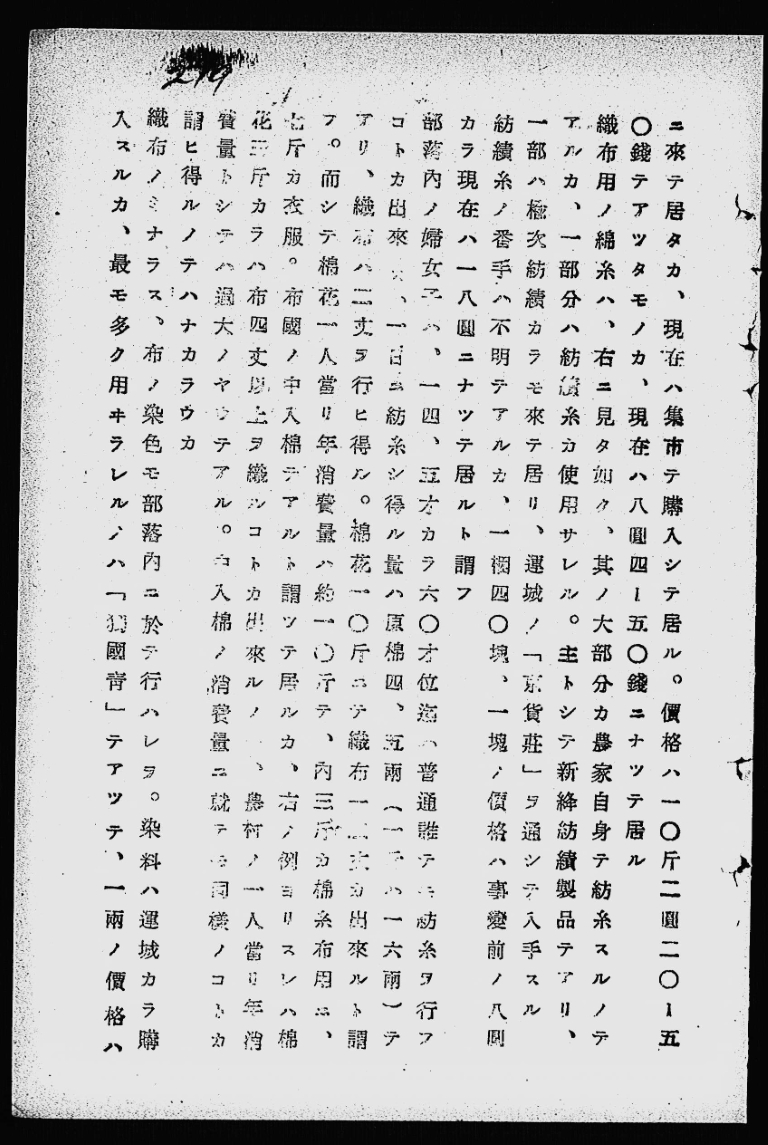 219
ニ來テ居タカ、現在ハ集市テ購入シテ居ル。價格ハ一〇斤二圓二〇ー五
〇錢テアツタモノカ、現在ハ八圓四ー五〇錢ニナツテ居ル
織布用ノ綿糸ハ、右ニ見タ如ク、其ノ大部分カ農家自身テ紡糸スルノテ
アルカ、一部分ハ紡績糸カ使用サレル。主トシテ新絳紡績製品テアリ、
一部ハ楡次紡績カラモ來テ居リ、運城ノ「京貨莊」ヲ通シテ入手スル
紡績糸ノ番手ハ不明テアルカ、一梱四〇塊、一塊ノ價格ハ事變前ノ八圓
カラ現在ハ一八圓ニナツテ居ルト謂フ
部落內ノ婦女子ハ、一四、五才カラ六〇才位迄ハ普通誰テモ紡糸ヲ行フ
コトカ出來、一日ニ紡糸シ得ル量ハ原棉四、五兩(一斤ハ一六兩)テ
アリ、織布ハ二丈ヲ行ヒ得ル。棉花一〇斤ニテ織布一丈カ出來ルト謂
フ。而シテ棉花一人當リ年消費量ハ約一〇斤テ、內三斤カ棉糸布用ニ、
七斤カ衣服。布團ノ中入棉テアルト謂ツテ居ルカ、右ノ例ヨリスレハ棉
花三斤カラハ布四丈以上ヲ織ルコトカ出來ルノ、農村ノ一人當リ年消
費量トシテハ過大ノヤウテアル。中入棉ノ消費量ニ就テモ同樣ノコトカ
謂ヒ得ルノテハナカラウカ
織布ノミナラス、布ノ染色モ部落內ニ於テ行ハレヲ。染料ハ運城カラ購
入スルカ、最モ多ク用ヰラレルノハ「獨國靑」テアツテ、一兩ノ價格ハ